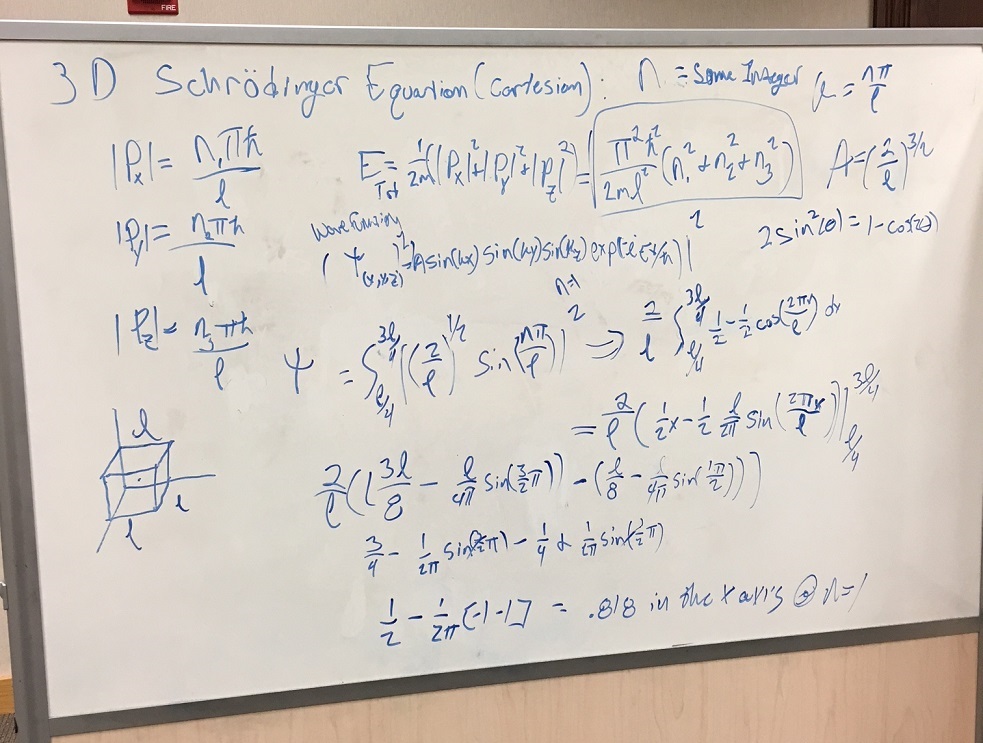 FIRE
3D Schrödinger Equation (Cartesian): n = Some Integer k = nπ/l
|Pₓ| = n₁πħ/l
E_Tot = 1/2m (|Pₓ|² + |Pᵧ|² + |P_z|²) = π²ħ²/2ml² (n₁² + n₂² + n₃²)
A = (2/l)^3/2
|Pᵧ| = n₂πħ/l
wave function
|Ψ(x,y,z)|² = |A sin(kx) sin(ky) sin(kz) exp(-iEt/ħ)|²
2sin²(θ) = 1 - cos(2θ)
n=1
|P_z| = n₃πħ/l
Ψ = ∫_l/4^3l/4 |(2/l)^1/2 sin(nπ/l)|² ⇒ 2/l ∫_l/4^3l/4 1/2 - 1/2 cos(2πx/l) dx
= 2/l (1/2 x - 1/2 l/2π sin(2πx/l))|_l/4^3l/4
l
l
l
2/l ((3l/8 - l/4π sin(3/2 π)) - (l/8 - l/4π sin(1π/2)))
3/4 - 1/2π sin(3/2 π) - 1/4 + 1/2π sin(1/2 π)
1/2 - 1/2π [-1-1] = .818 in the x axis @ n=1